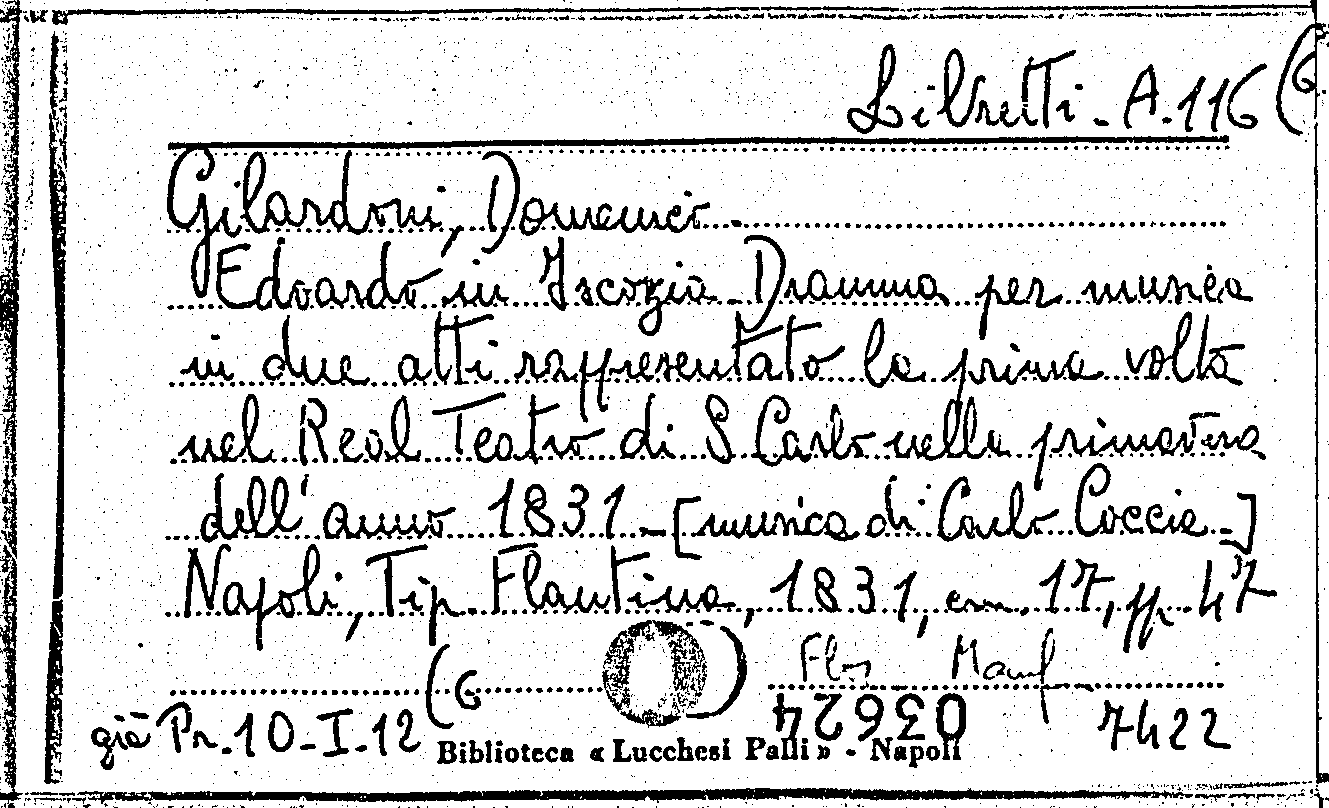 Libretti - A. 116 (6
Gilardoni, Domenico -
Edoardo in Iscozia - Dramma per musica
in due atti rappresentato la prima volta
nel Real Teatro di S. Carlo nella primavera
dell'anno 1831 - [musica di Carlo Coccia -]
Napoli, Tip. Flautina, 1831, cm. 17, pp. 47
(6
già Pr. 10-I-12
03624
7422
Biblioteca « Lucchesi Palli » - Napoli